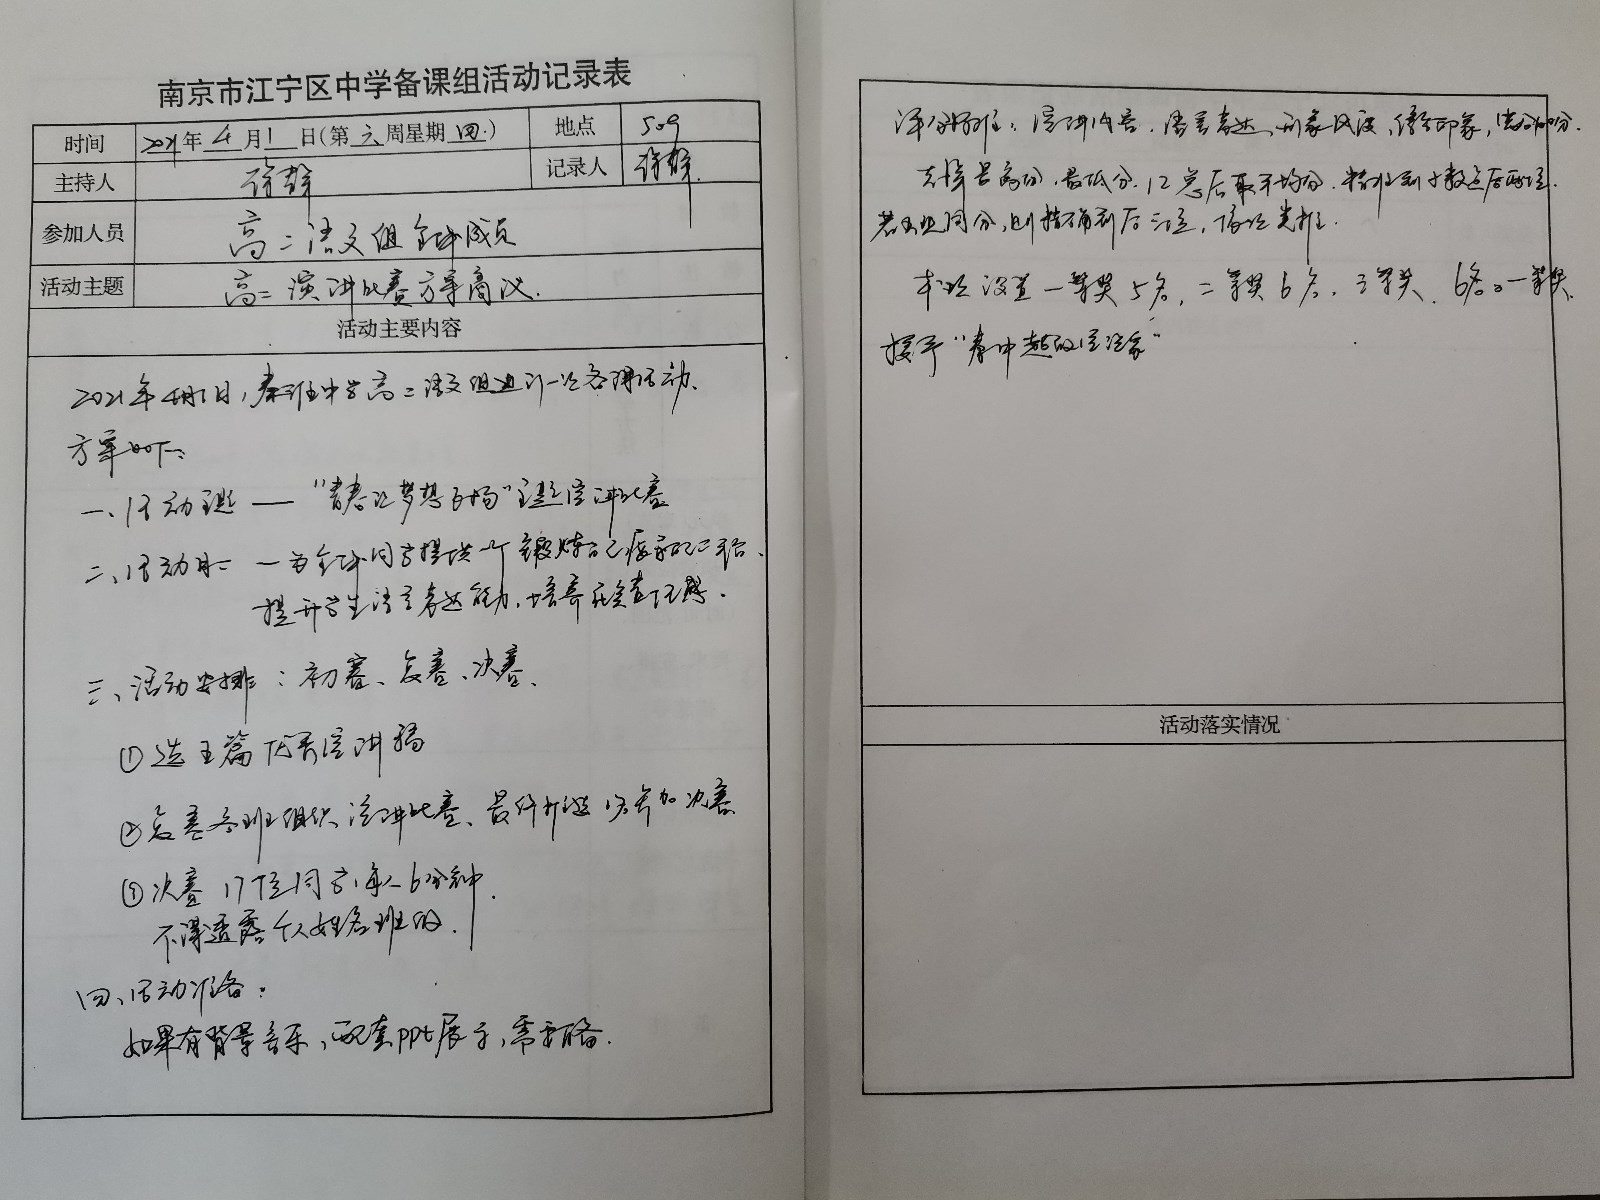 南京市江宁区中学备课组活动记录表
时间 2021年4月1日(第六周星期四.) 地点 509
主持人 徐群 记录人 徐群
参加人员 高二语文组全体成员
活动主题 高二演讲比赛方案商议.
活动主要内容
2021年4月1日,秦淮中学高二语文组进行一次备课活动.
方案如下:
一、活动主题——“青春让梦想飞扬”主题演讲比赛
二、活动目 一为全体同学提供一个锻炼自己展示自己平台.
提升学生语言表达能力,培养社会责任感.
三、活动安排:初赛、复赛、决赛.
①选 篇优秀演讲稿
②复赛各班组织演讲比赛、最终 参加决赛
③决赛 17位同学,每人6分钟.
不得透露个人姓名班级.
四、活动准备:
如果有背景音乐,配套ppt展示,需要自备.
评分标准:演讲内容.语言表达、形象风度,综合印象,满分100分.
去掉最高分,最低分.汇总后取平均分.精确到小数点后两位.
若出现同分,则精确到后三位,依次类推.
本次设置一等奖5名,二等奖6名.三等奖.6名。一等奖
授予“秦中 演说家”
活动落实情况